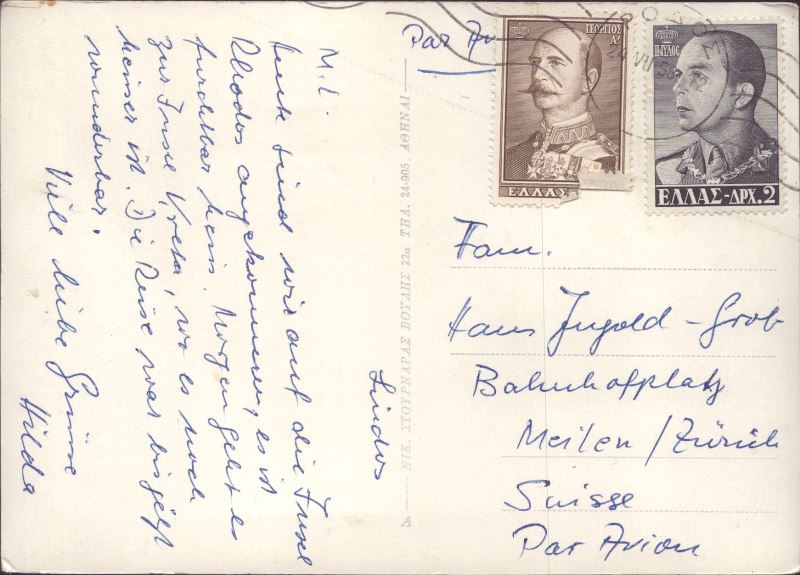 Lindos
M. L.
Heute sind wir auf die Insel
Rhodos angekommen, es ist
furchtbar heiss. Morgen geht es
zur Insel Kreta, wo es noch
heisser ist. Die Reise war bis jetzt
wunderbar.
Viele liebe Grüsse
Hilda
Α ΝΙΚ. ΣΤΟΥΡΝΑΡΑΣ ΒΟΥΛΗΣ 22α ΤΗΛ. 24-905 ΑΘΗΝΑΙ
Par Av
ΓΕΩΡΓΙΟΣ
Α'
ΕΛΛΑΣ
ΠΑΥΛΟΣ
ΕΛΛΑΣ-ΔΡΧ.2
24 VII 58
Fam.
Hans Ingold-Grob
Bahnhofplatz
Meilen/Zürich
Suisse
Par Avion